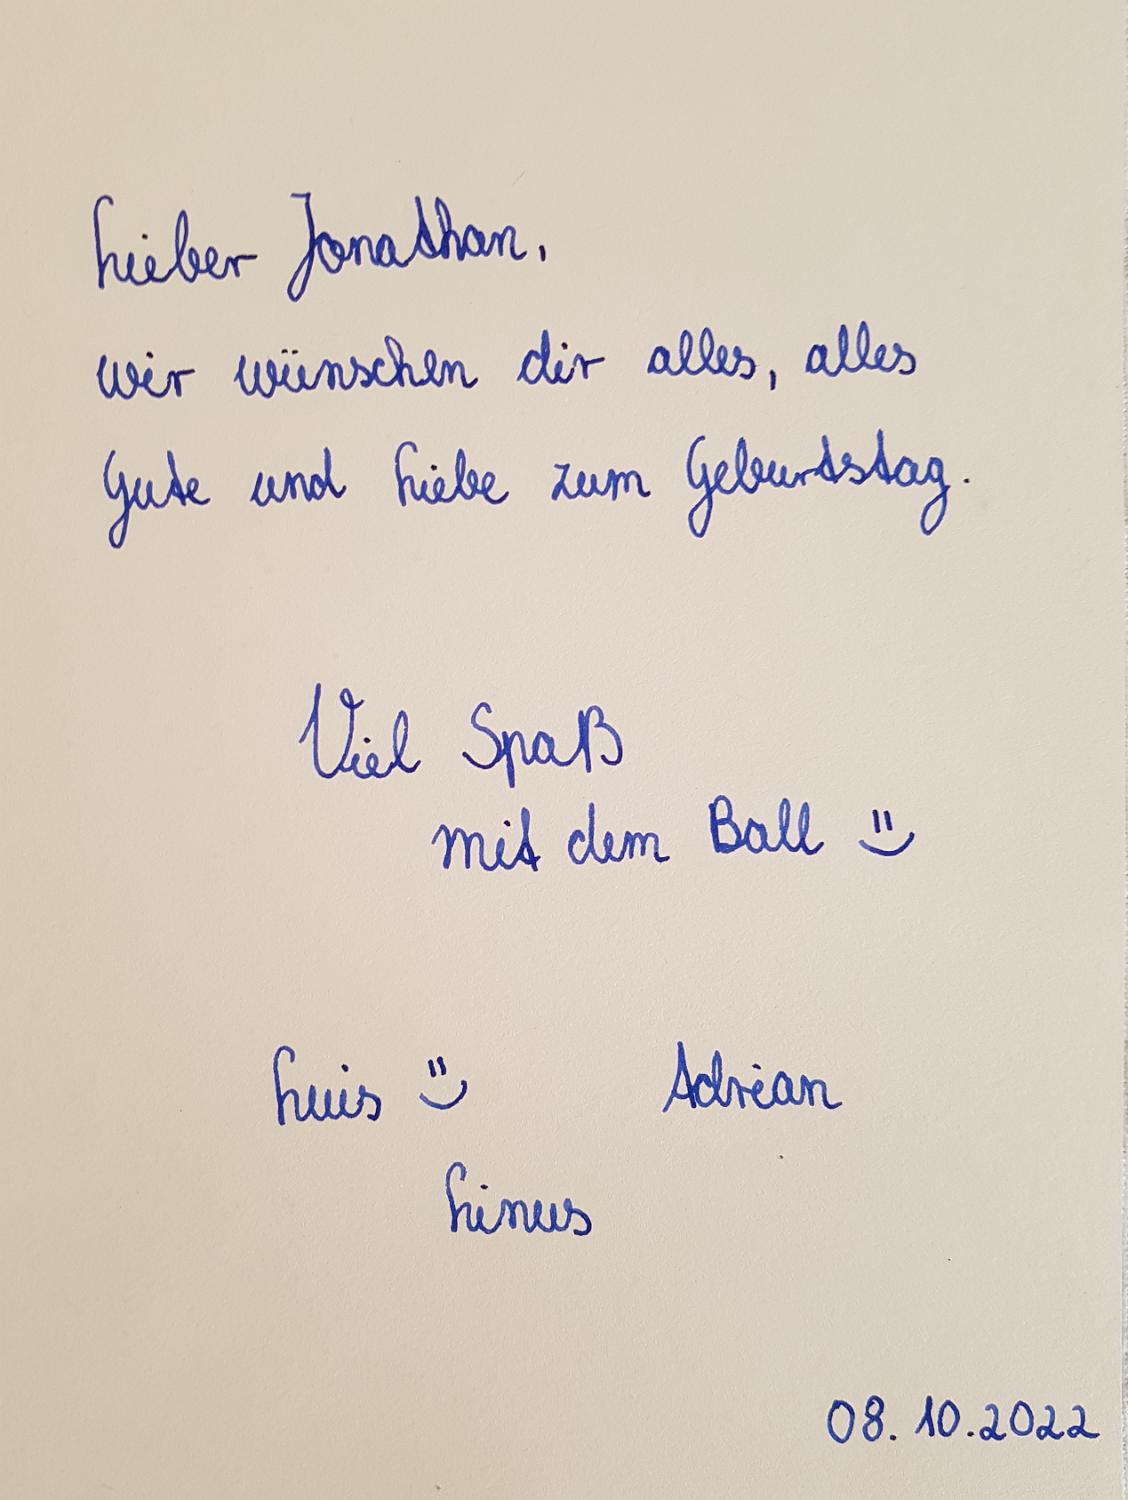 Lieber Jonathan,
wir wünschen dir alles, alles
Gute und Liebe zum Geburtstag.
Viel Spaß
mit dem Ball
Luis
Adrian
Linus
08.10.2022